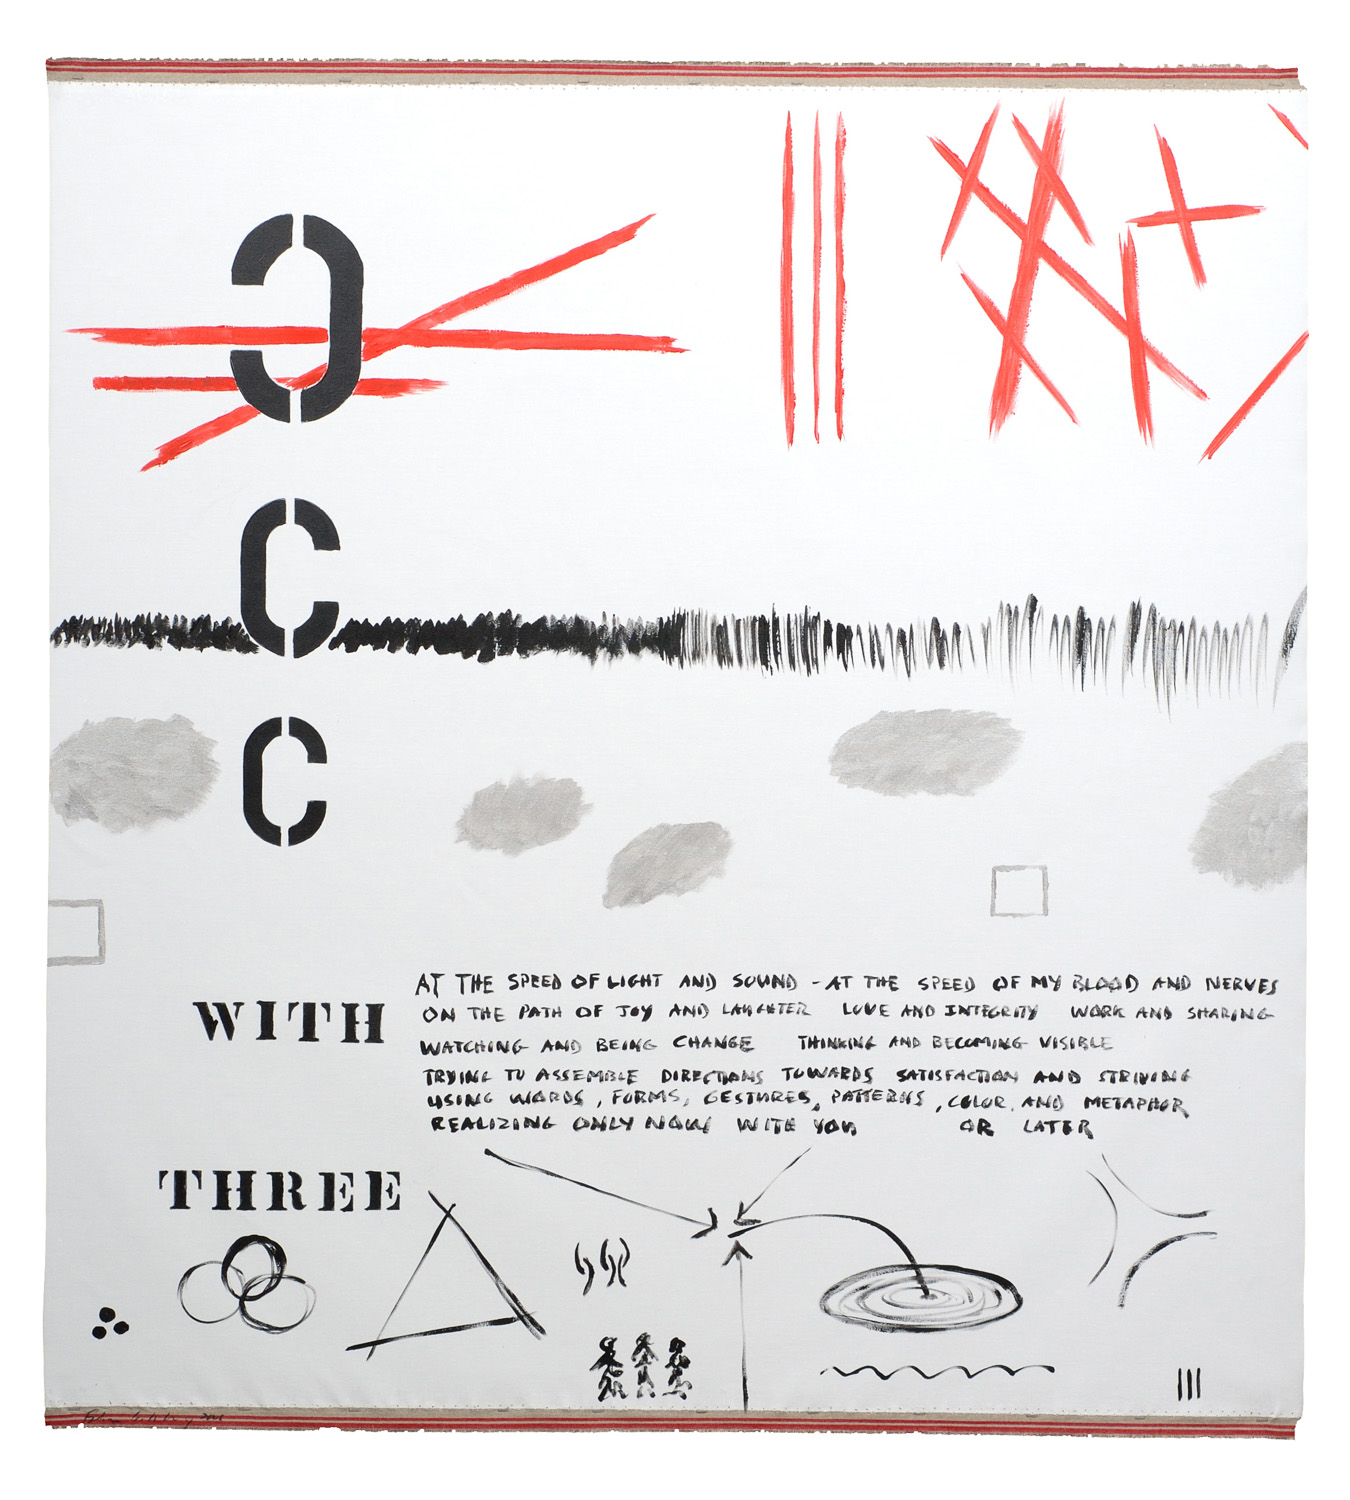 Ɔ
C
C
WITH
AT THE SPEED OF LIGHT AND SOUND - AT THE SPEED OF MY BLOOD AND NERVES
ON THE PATH OF JOY AND LAUGHTER LOVE AND INTEGRITY WORK AND SHARING
WATCHING AND BEING CHANGE THINKING AND BECOMING VISIBLE
TRYING TO ASSEMBLE DIRECTIONS TOWARDS SATISFACTION AND STRIVING
USING WORDS, FORMS, GESTURES, PATTERNS, COLOR, AND METAPHOR
REALIZING ONLY NOW WITH YOU OR LATER
THREE